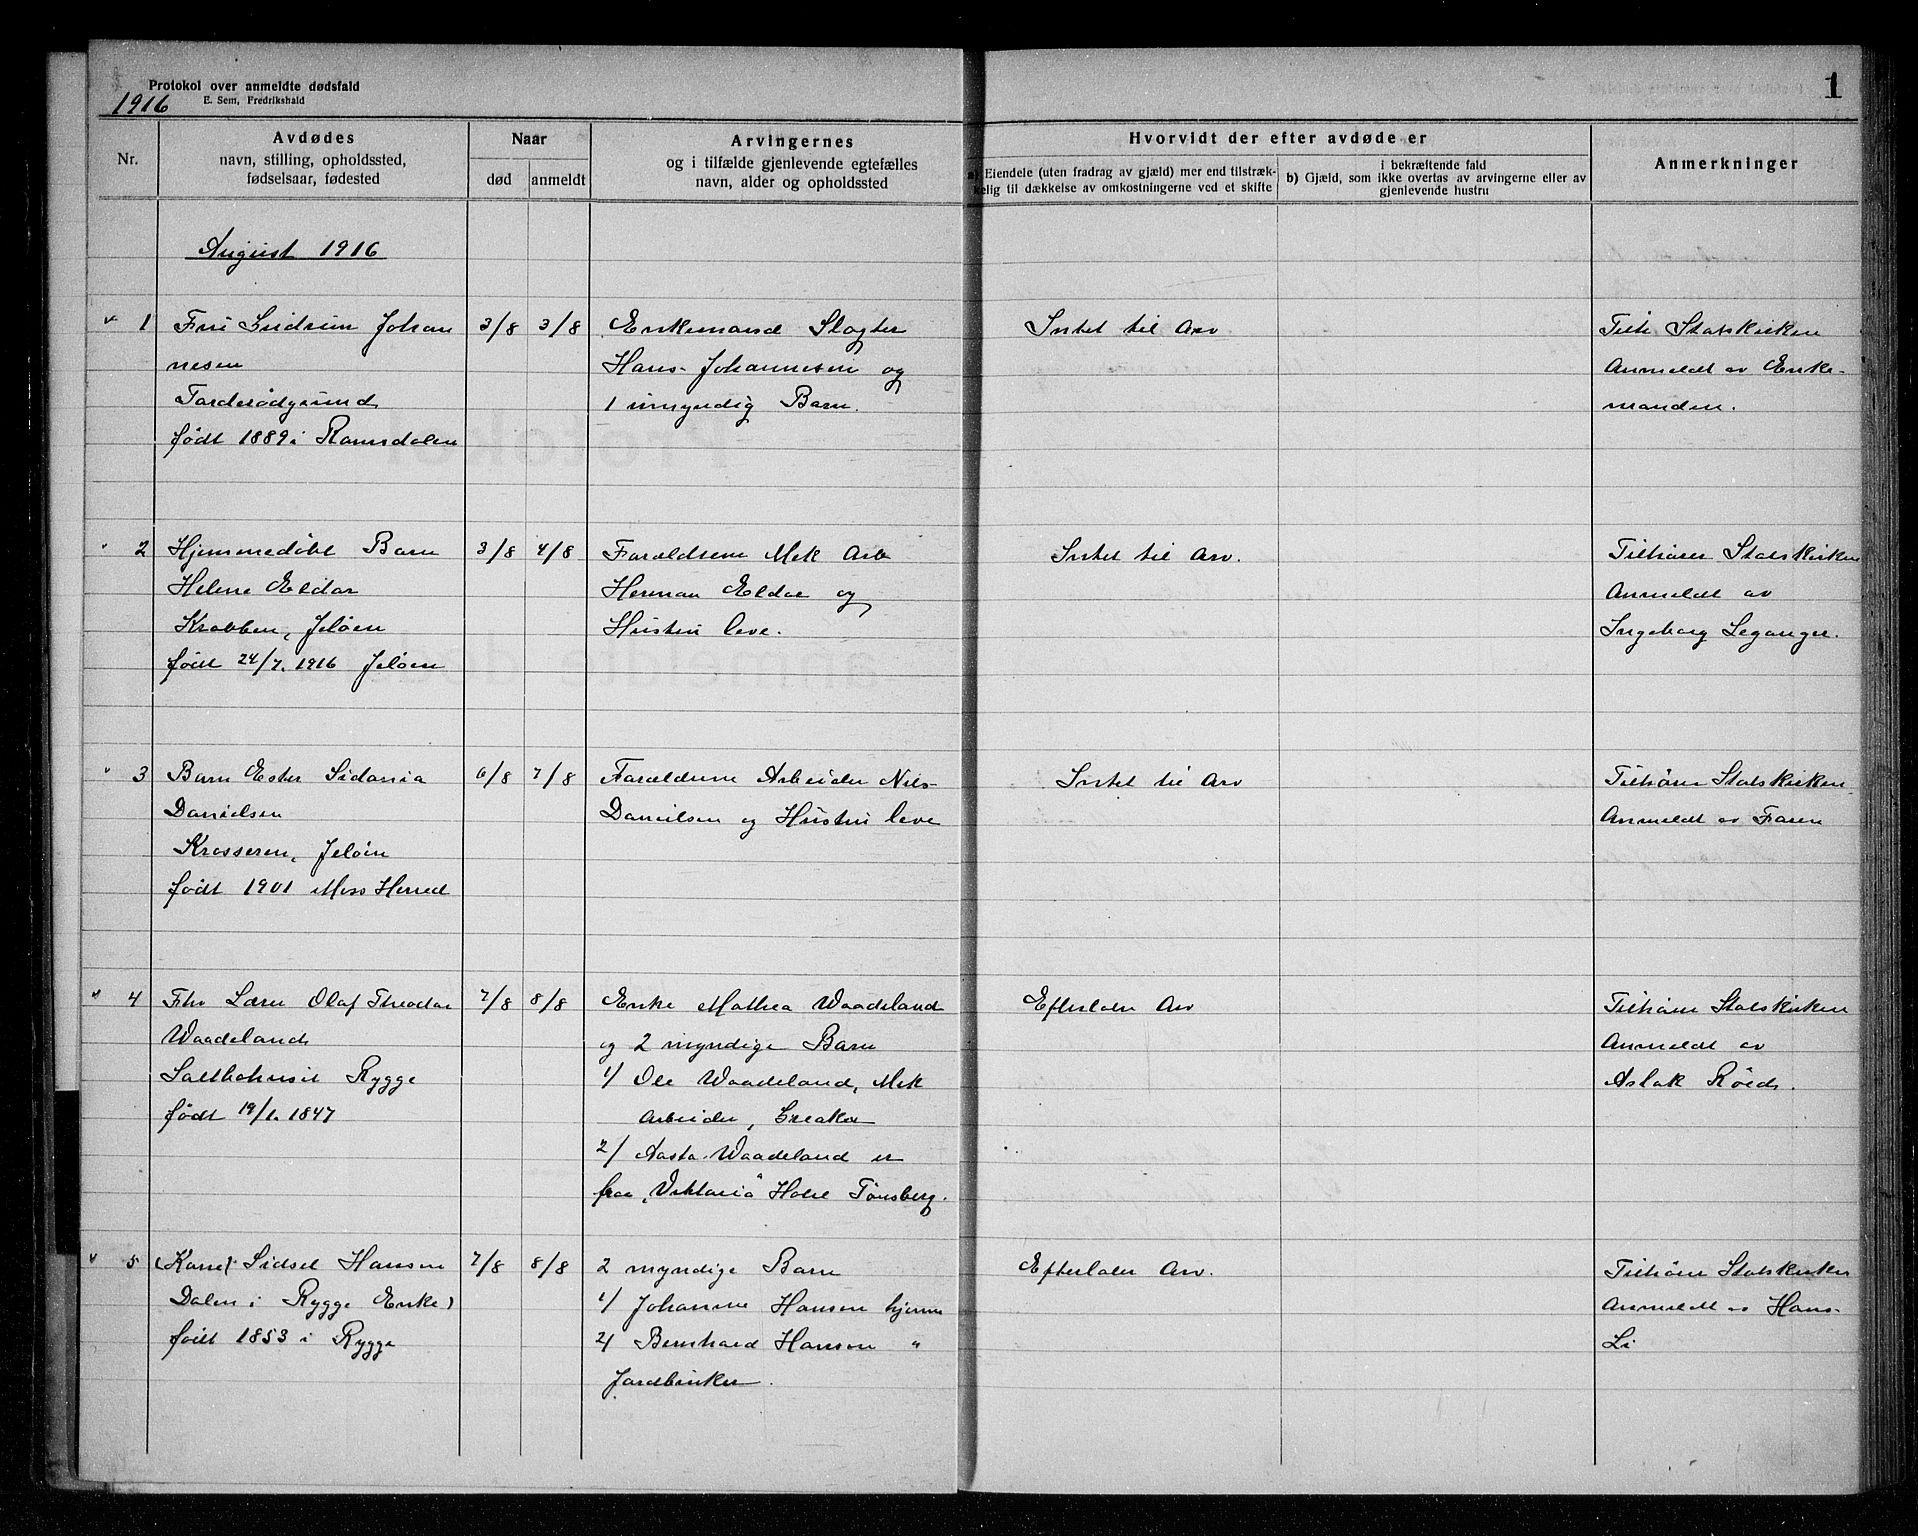 Protokol over anmeldte dødsfald
E. Sem, Fredrikshald
1916
1
Nr.
Avdødes
navn, stilling, opholdssted,
fødselsaar, fødested
Naar
død
anmeldt
Arvingernes
og i tilfælde gjenlevende egtefælles
navn, alder og opholdssted
Hvorvidt der efter avdøde er
a) Eiendele (uten fradrag av gjæld) mer end tilstræk-
kelig til dækkelse av omkostningerne ved et skifte
i bekræftende fald
b) Gjæld, som ikke overtas av arvingerne eller av
gjenlevende hustru
Anmerkninger
August 1916
1
Fru Gudrun Johan
nesen
Tarderødgrund
født 1889 i Romsdalen
3/8
3/8
Enkemand Slagter
Hans Johannesen og
1 umyndig Barn.
Intet til Arv
Tilh Statskirken
Anmeldt av Enke-
manden.
2
Hjemmedøbt Barn
Helene Eldar
Krabben, Jeløen
født 24/7. 1916 Jeløen
3/8
4/8
Forældrene Mek Arb
Herman Eldar og
Hustru leve.
Intet til Arv.
Tilhører Statskirken
Anmeldt av
Ingeborg Leganger.
3
Barn Ester Sidania
Danielsen
Krosseren, Jeløen
født 1901 Moss Herred
6/8
7/8
Forældrene Arbeider Nils
Danielsen og Hustru leve
Intet til Arv
Tilhører Statskirken
Anmeldt av Faren
4
Fhv Lærer Olaf Theodor
Waadeland
Saltbohuset Rygge
født 19/1. 1847
7/8
8/8
Enke Mathea Waadeland
og 2 myndige Barn
1/ Ole Waadeland, Mek
Arbeider, Greaker
2/ Aasta Waadeland er
paa "Viktoria" Hotel Tønsberg.
Efterlater Arv
Tilhører Statskirken
Anmeldt av
Aslak Röed.
5
(Kone) Sidsel Hansen
Dalen i Rygge Enke)
født 1853 i Rygge
7/8
8/8
2 myndige Barn
1/ Johanne Hansen hjemme
2/ Bernhard Hansen "
Jordbruker.
Efterlater Arv.
Tilhører Statskirken
Anmeldt av Hans
Li